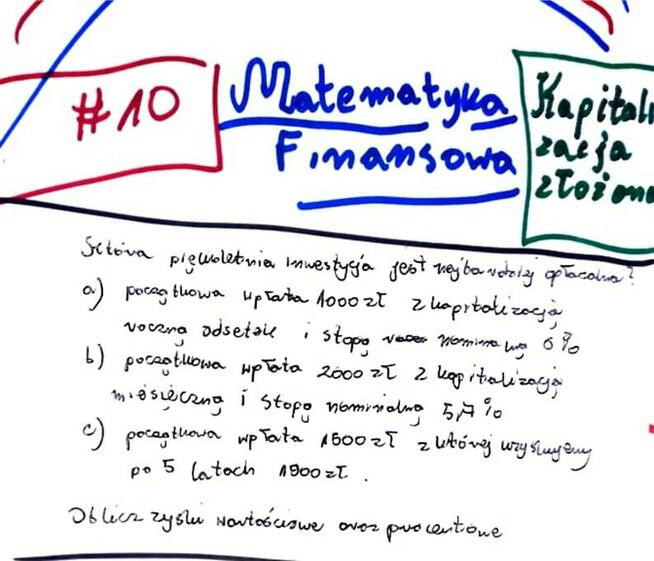 #10
Matematyka
Finansowa
Kapitali
zacja
złożona
Która pięcioletnia inwestycja jest najbardziej opłacalna?
a) początkowa wpłata 1000 zł z kapitalizacją
roczną odsetek i stopą nominalną 6%
b) początkowa wpłata 2000 zł z kapitalizacją
miesięczną i stopą nominalną 5,7%
c) początkowa wpłata 1500 zł z której uzyskujemy
po 5 latach 1900 zł.
Oblicz zyski wartościowe oraz procentowe